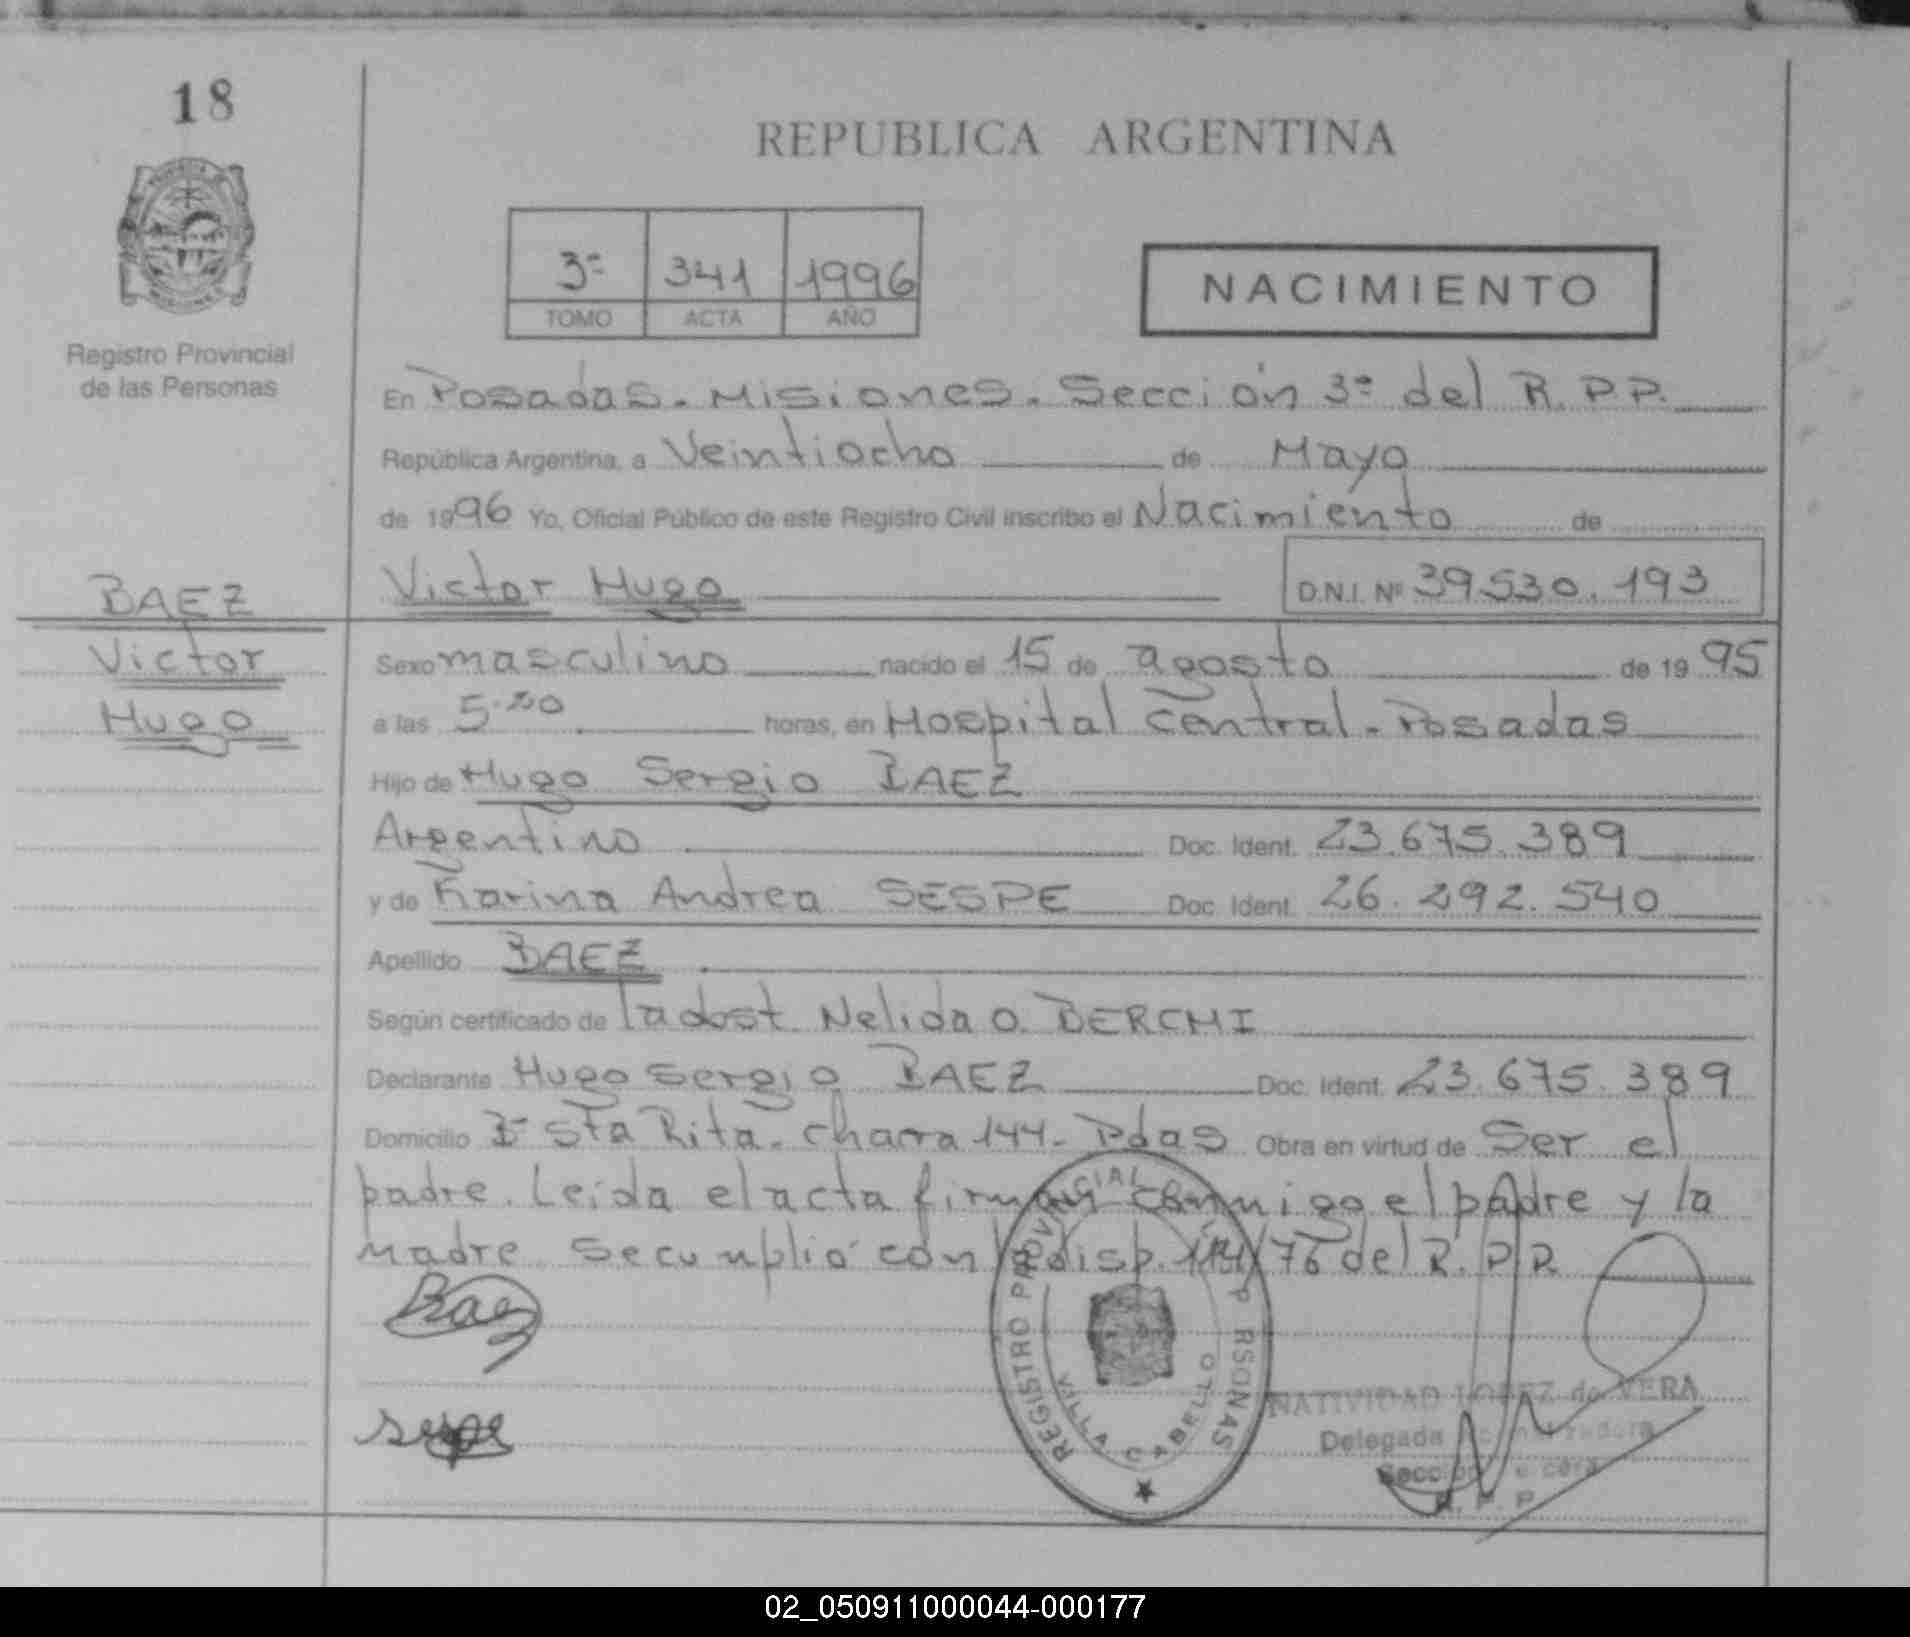 18
REPUBLICA ARGENTINA
3ª 341 1996
TOMO ACTA AÑO
NACIMIENTO
Registro Provincial
de las Personas
En Posadas. Misiones. Sección 3ª del R.P.P.
República Argentina, a Veintiocho de Mayo
de 1996 Yo, Oficial Público de este Registro Civil inscribo el Nacimiento de
BAEZ
Victor
Hugo
Victor Hugo D.N.I. Nº 39.530.193
Sexo masculino nacido el 15 de agosto de 1995
a las 5.20 horas, en Hospital Central - Posadas
Hijo de Hugo Sergio BAEZ
Argentino Doc. Ident. 23.675.389
y de Karina Andrea SESPE Doc. Ident. 26.292.540
Apellido BAEZ
Según certificado de la obst. Nelida O. BERCHI
Declarante Hugo Sergio BAEZ Doc. Ident. 23.675.389
Domicilio Bº Sta Rita - chacra 144 - Pdas Obra en virtud de Ser el
padre. Leída el acta firman conmigo el padre y la
madre. Se cumplió con la disp. 114/76 del R.P.P.
Baez
Sespe
REGISTRO PROVINCIAL PERSONAS
VILLA CABELLO
NATIVIDAD LOPEZ de VERA
Delegada
Sección
R. P. P.
02_050911000044-000177